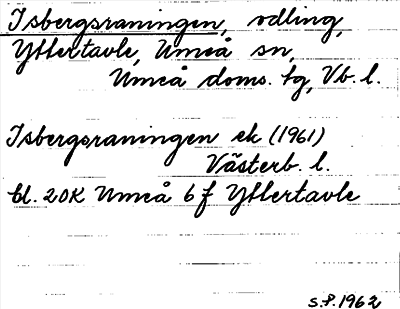 Isbergsraningen, odling,
Yttertavle, Umeå sn,
Umeå doms. tg, Vb. l.
Isbergsraningen ek (1961)
Västerb. l.
bl. 20K Umeå 6f Yttertavle
S.F. 1962